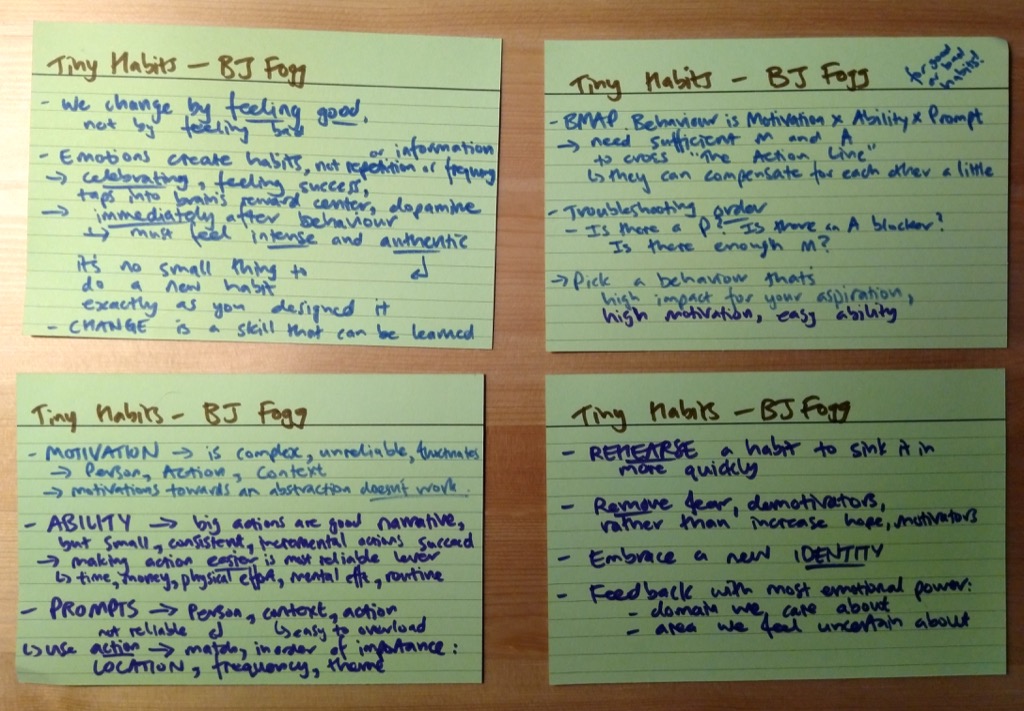 Tiny Habits - BJ Fogg
- We change by feeling good.
not by feeling bad
- Emotions create habits, not repetition or frequency or information
→ celebrating, feeling success,
taps into brain's reward center, dopamine
→ immediately after behaviour
↳ must feel intense and authentic
it's no small thing to
do a new habit
exactly as you designed it
- CHANGE is a skill that can be learned
Tiny Habits - BJ Fogg
for good
or bad
habits!
- BMAP Behaviour is Motivation x Ability x Prompt
→ need sufficient M and A
to cross "The Action Line"
↳ they can compensate for each other a little
- Troubleshooting order
- Is there a P? Is there an A blocker?
Is there enough M?
→ Pick a behaviour that's
high impact for your aspiration,
high motivation, easy ability
Tiny Habits - BJ Fogg
- MOTIVATION → is complex, unreliable, fluctuates
→ Person, Action, Context
→ motivations towards an abstraction doesn't work.
- ABILITY → big actions are good narrative,
but small, consistent, incremental actions succeed
→ making action easier is most reliable lever
↳ time, money, physical effort, mental effo, routine
- PROMPTS → Person, context, action
not reliable ↲ ↳ easy to overload
↳ use action → match, in order of importance:
LOCATION, frequency, theme
Tiny Habits - BJ Fogg
- REHEARSE a habit to sink it in
more quickly
- Remove fear, demotivators,
rather than increase hope, motivators
- Embrace a new IDENTITY
- Feedback with most emotional power:
- domain we care about
- area we feel uncertain about